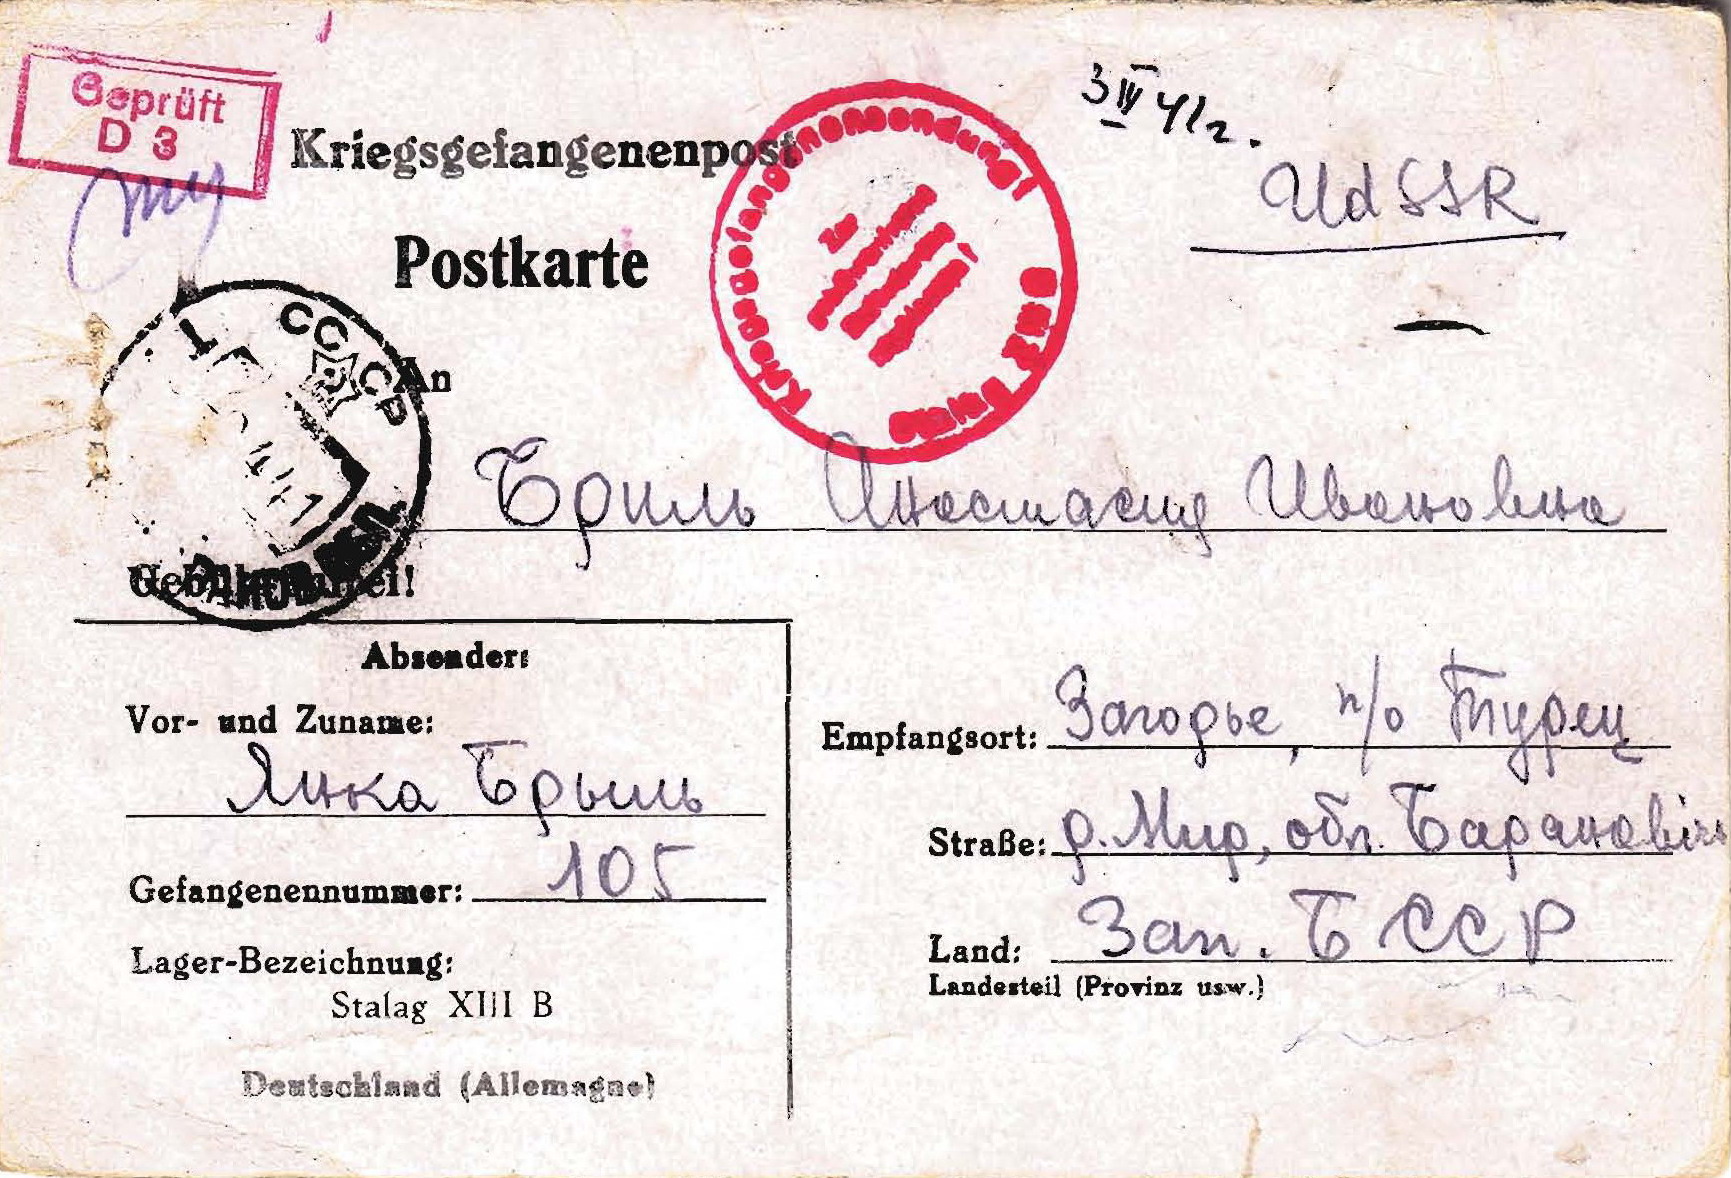 Geprüft
D 3
3 IV 41 г.
Kriegsgefangenenpost
UdSSR
Postkarte
СССР
An
Бриль Анастасия Ивановна
Gebührenfrei!
Absender:
Vor- und Zuname:
Янка Брыль
Gefangenennummer: 105
Lager-Bezeichnung:
Stalag XIII B
Deutschland (Allemagne)
Empfangsort: Загорье, п/о Турец
Straße: р. Мир, обл. Баранавічи
Land: Зап. БССР
Landesteil (Provinz usw.)
Kriegsgefangenensendung!